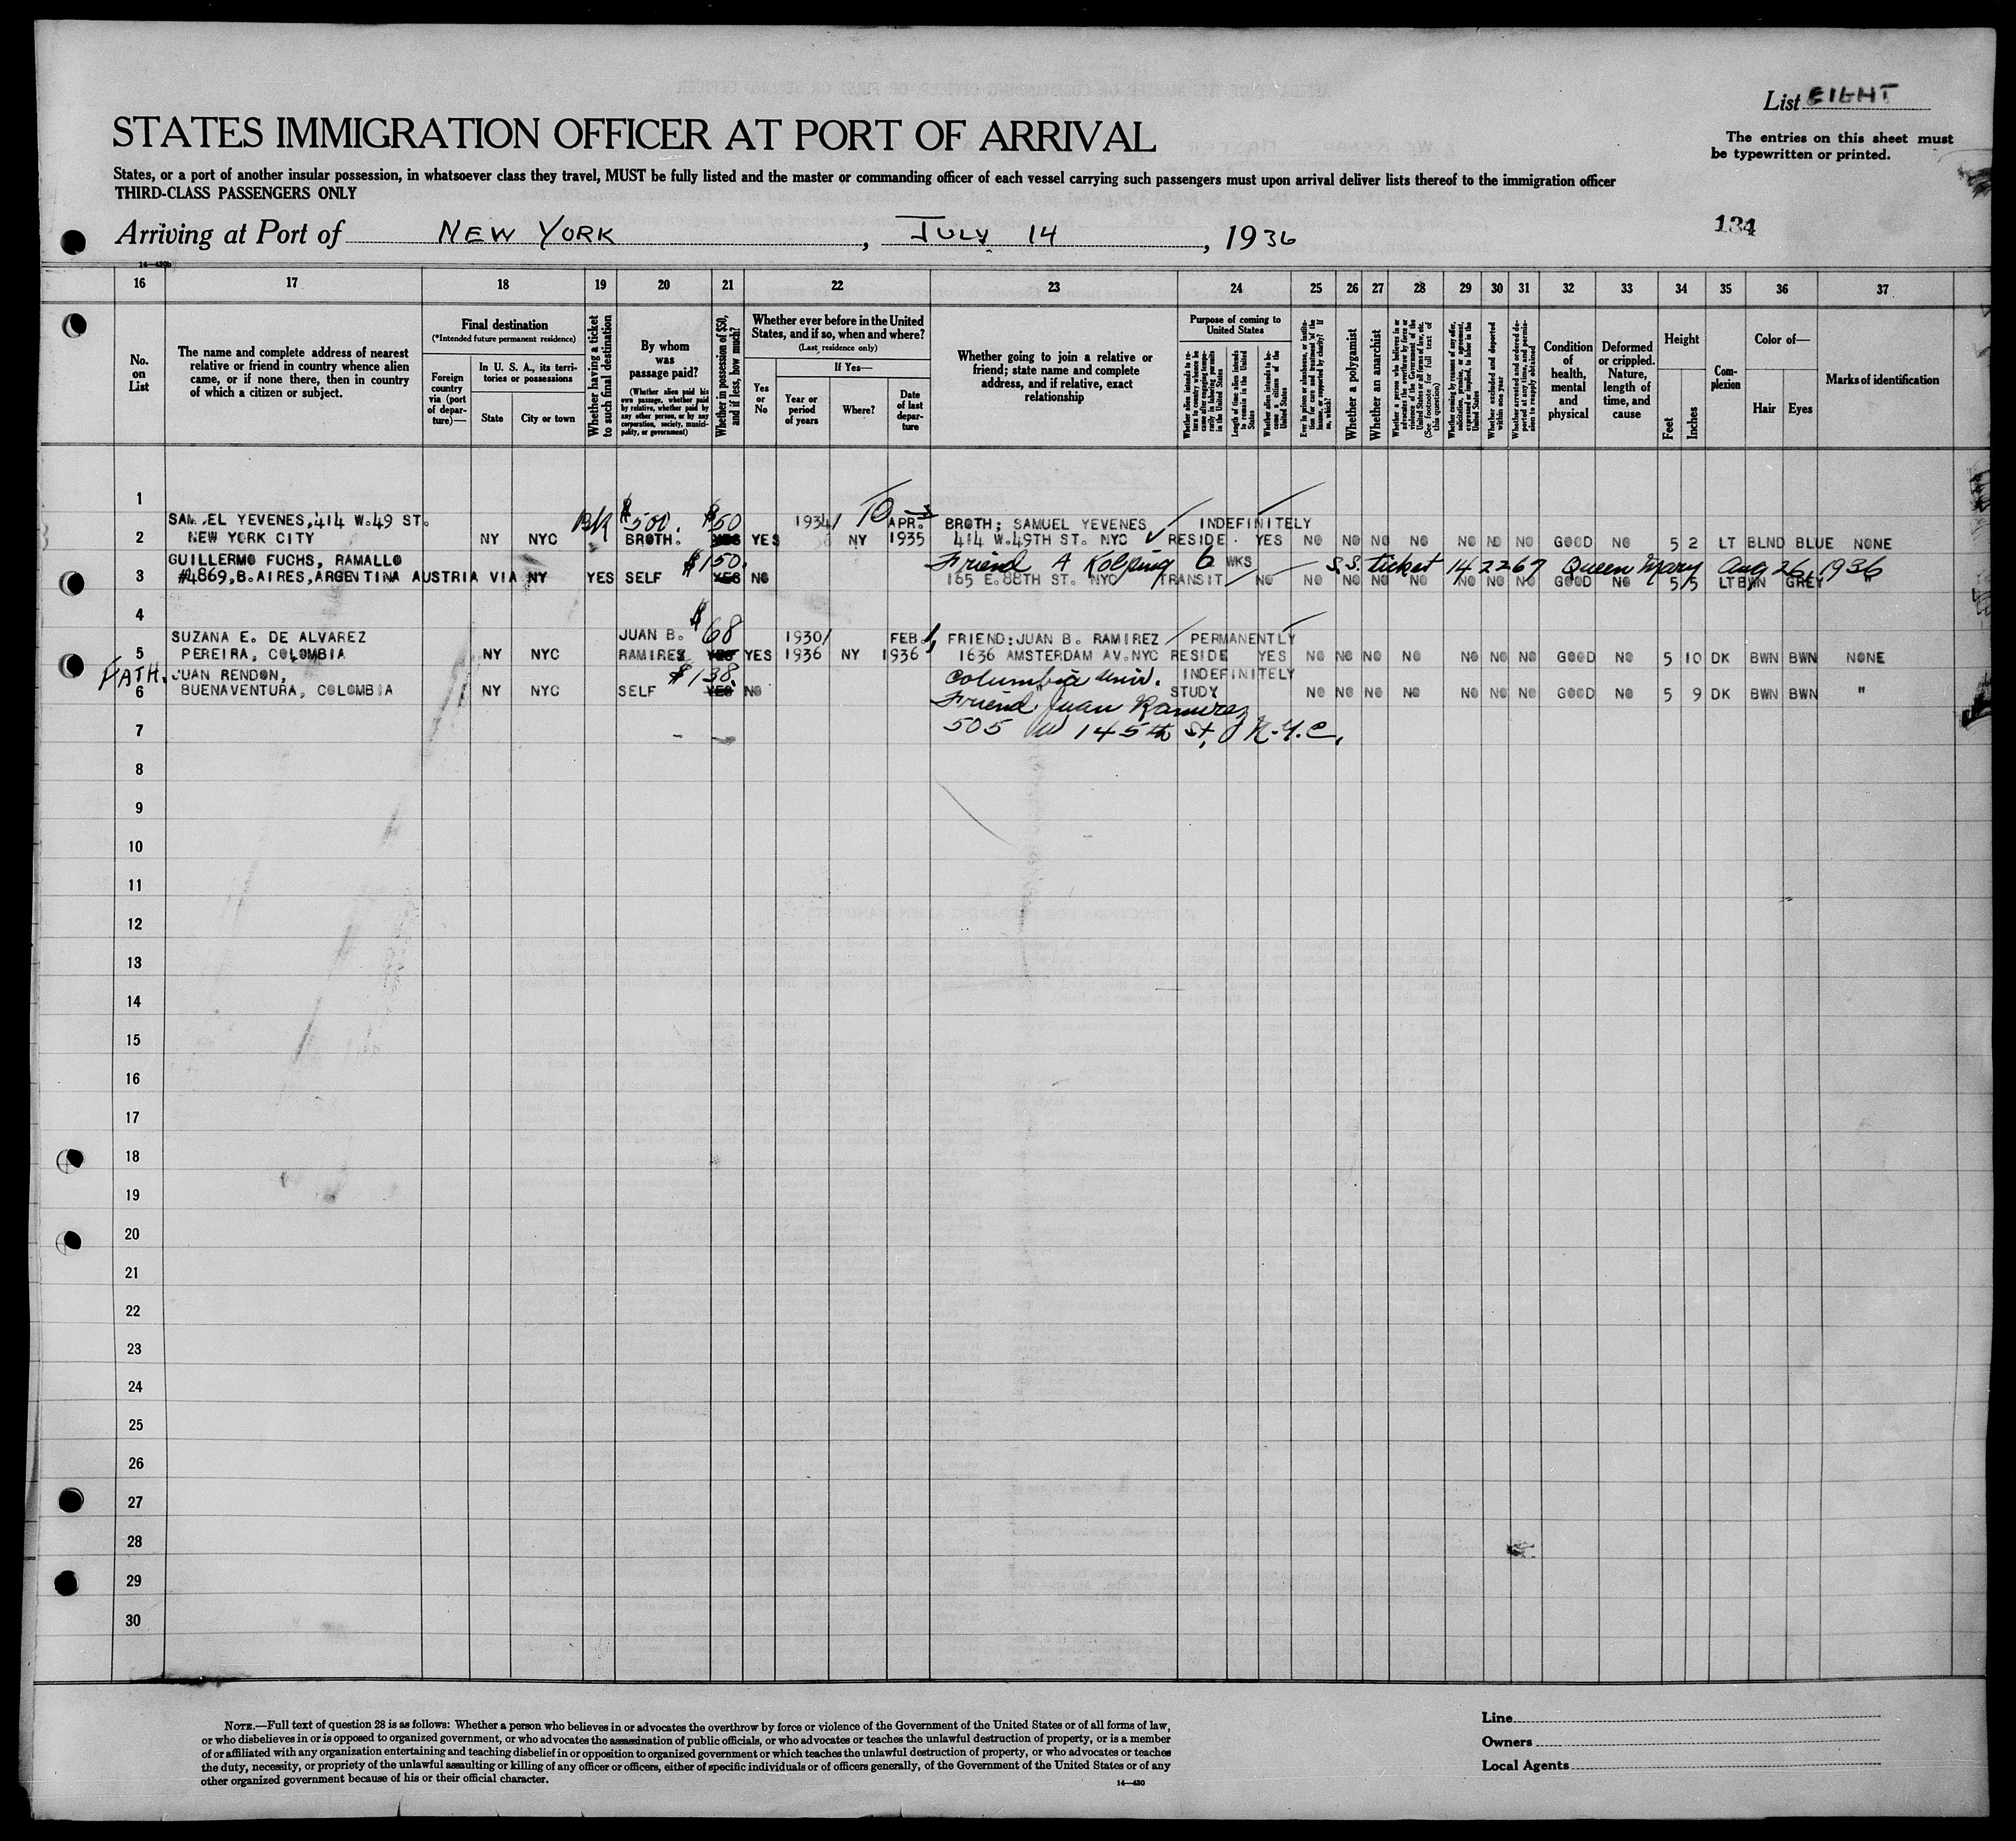 List EIGHT
STATES IMMIGRATION OFFICER AT PORT OF ARRIVAL
The entries on this sheet must
be typewritten or printed.
States, or a port of another insular possession, in whatsoever class they travel, MUST be fully listed and the master or commanding officer of each vessel carrying such passengers must upon arrival deliver lists thereof to the immigration officer
THIRD-CLASS PASSENGERS ONLY
134
Arriving at Port of NEW YORK, JULY 14, 1936
14—430b
16 17 18 19 20 21 22 23 24 25 26 27 28 29 30 31 32 33 34 35 36 37
No. on List
The name and complete address of nearest relative or friend in country whence alien came, or if none there, then in country of which a citizen or subject.
Final destination
(*Intended future permanent residence)
Foreign country via (port of departure)—
In U. S. A., its territories or possessions
State
City or town
Whether having a ticket to such final destination
By whom was passage paid?
(Whether alien paid his own passage, whether paid by relative, whether paid by any other person, or by any corporation, society, municipality, or government)
Whether in possession of $50, and if less, how much?
Whether ever before in the United States, and if so, when and where?
(Last residence only)
Yes or No
If Yes—
Year or period of years
Where?
Date of last departure
Whether going to join a relative or friend; state name and complete address, and if relative, exact relationship
Purpose of coming to United States
Whether alien intends to return to country whence he came after engaging temporarily in laboring pursuits in the United States
Length of time alien intends to remain in the United States
Whether alien intends to become a citizen of the United States
Ever in prison or almshouse, or institution for care and treatment of the insane, or supported by charity? If so, which?
Whether a polygamist
Whether an anarchist
Whether a person who believes in or advocates the overthrow by force or violence of the Government of the United States or all forms of law, etc. (See footnote for full text of this question)
Whether coming by reason of any offer, solicitation, promise, or agreement, expressed or implied, to labor in the United States
Whether excluded and deported within one year
Whether arrested and ordered deported at any time, and permission to reapply obtained
Condition of health, mental and physical
Deformed or crippled. Nature, length of time, and cause
Height
Feet
Inches
Complexion
Color of—
Hair
Eyes
Marks of identification
1
SAMUEL YEVENES, 414 W.49 ST. $500. $50 1934/ APR. BROTH; SAMUEL YEVENES INDEFINITELY
2 NEW YORK CITY NY NYC BROTH. YES YES NY 1935 414 W.49TH ST. NYC RESIDE YES NO NO NO NO NO NO NO GOOD NO 5 2 LT BLND BLUE NONE
GUILLERMO FUCHS, RAMALLO $150. Friend A Kolping 6 WKS S.S. ticket 142267 Queen Mary Aug 26, 1936
3 #4869, B.AIRES, ARGENTINA AUSTRIA VIA NY YES SELF YES NO 165 E.88TH ST. NYC TRANSIT NO NO NO NO NO NO NO NO GOOD NO 5 5 LT BWN GREY "
4
SUZANA E. DE ALVAREZ JUAN B. $68 1930/ FEB. 1, FRIEND: JUAN B. RAMIREZ PERMANENTLY
5 PEREIRA, COLOMBIA NY NYC RAMIREZ YES YES 1936 NY 1936 1636 AMSTERDAM AV. NYC RESIDE YES NO NO NO NO NO NO NO GOOD NO 5 10 DK BWN BWN NONE
FATH. JUAN RENDON, $138. Columbia Univ. INDEFINITELY
6 BUENAVENTURA, COLOMBIA NY NYC SELF YES NO STUDY NO NO NO NO NO NO NO GOOD NO 5 9 DK BWN BWN "
Friend Juan Ramirez
7 505 W 145th St, N.Y.C.
8
9
10
11
12
13
14
15
16
17
18
19
20
21
22
23
24
25
26
27
28
29
30
NOTE.—Full text of question 28 is as follows: Whether a person who believes in or advocates the overthrow by force or violence of the Government of the United States or of all forms of law,
or who disbelieves in or is opposed to organized government, or who advocates the assassination of public officials, or who advocates or teaches the unlawful destruction of property, or is a member
of or affiliated with any organization entertaining and teaching disbelief in or opposition to organized government or which teaches the unlawful destruction of property, or who advocates or teaches
the duty, necessity, or propriety of the unlawful assaulting or killing of any officer or officers, either of specific individuals or of officers generally, of the Government of the United States or of any
other organized government because of his or their official character.
14—430
Line
Owners
Local Agents